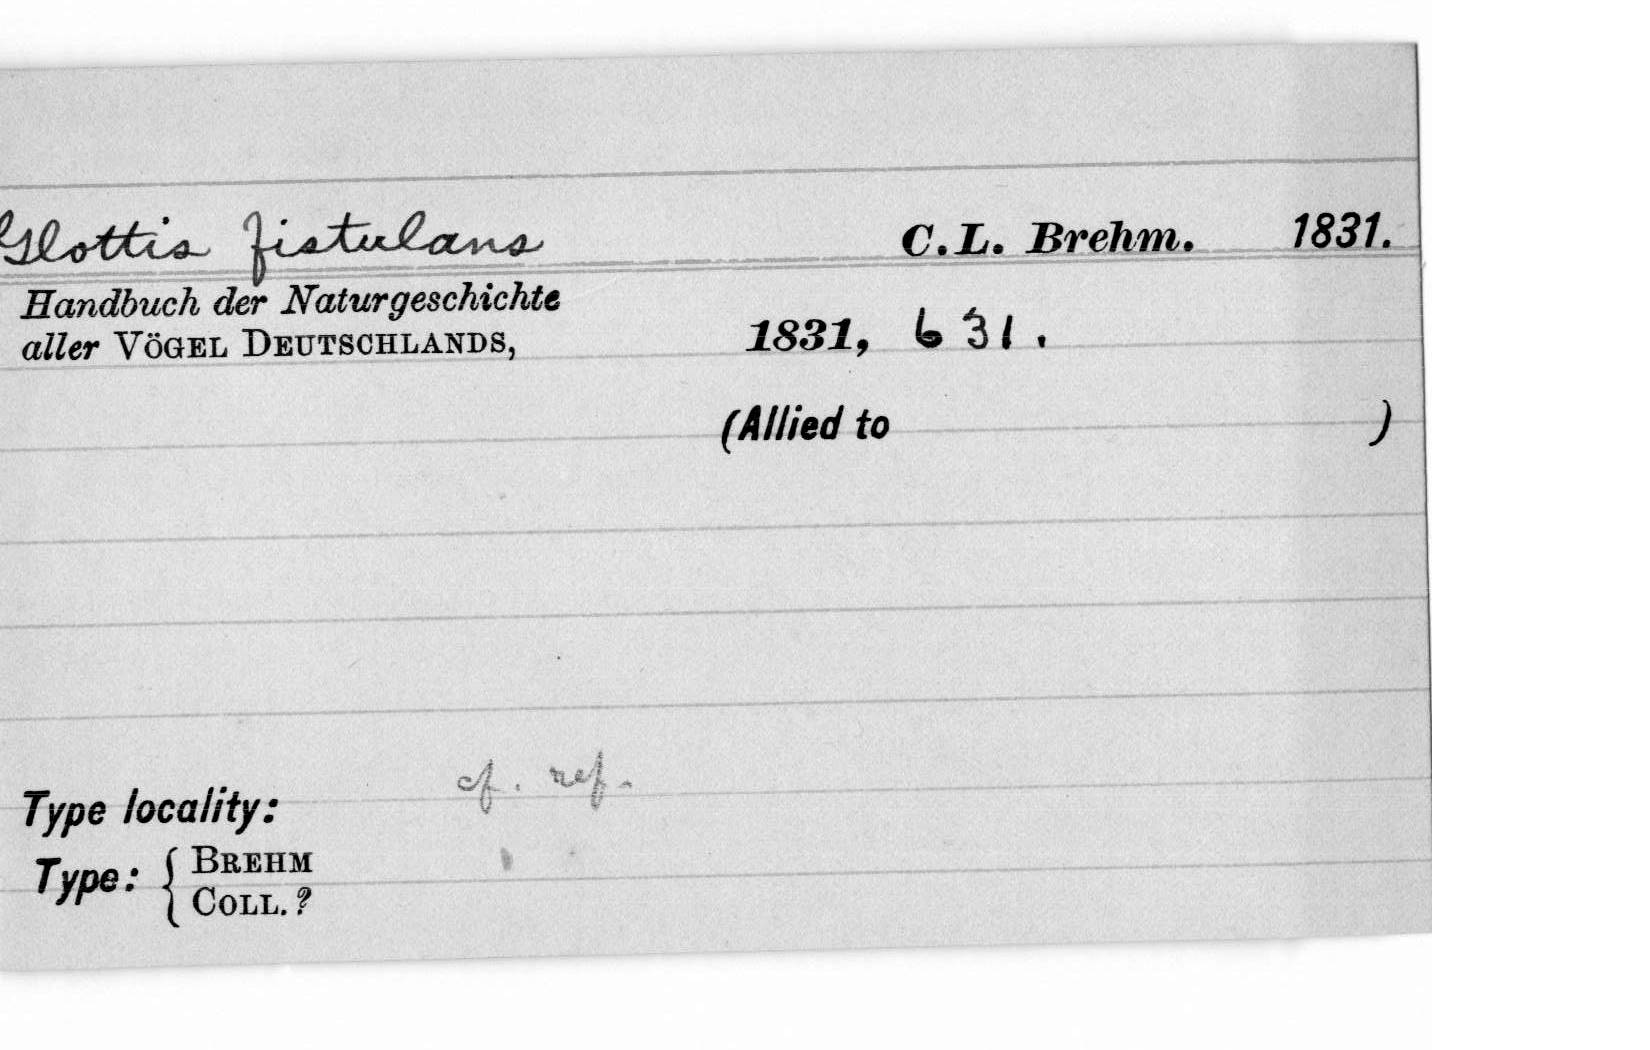 Glottis fistulans C.L. Brehm. 1831.
Handbuch der Naturgeschichte
aller VÖGEL DEUTSCHLANDS, 1831, 631.
(Allied to )
cf. ref.
Type locality:
Type: { BREHM
COLL. ?